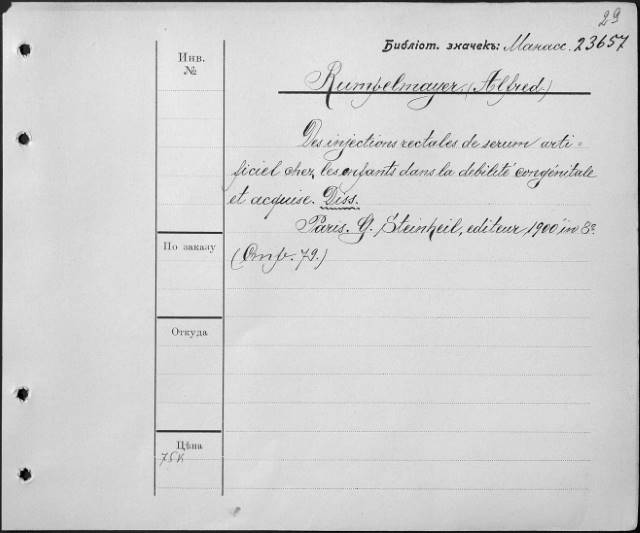 29
Библіот. значекъ: Манасс. 23657
Инв.
№
Rumpelmayer (Alfred)
Des injections rectales de serum arti-
ficiel chez les enfants dans la debilité congénitale
et acquise. Diss.
Paris. G. Steinheil, editeur, 1900 in 8º
По заказу
(79.)
Откуда
Цѣна
75к